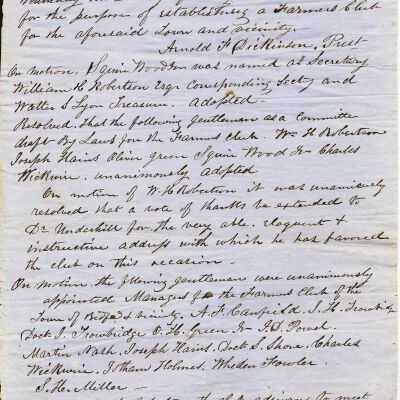 for the purpose of establishing a Farmers Club
for the aforesaid Town and vicinity.
Arnold F Dickinson, Prest
On motion, Squire Wood Jr was named as Secretary
William H. Robertson Esqr Corresponding Secty and
Walter S Lyon Treasurer. adopted.
Resolved, that the following gentleman as a Committee
draft By Laws for the Farmers club. Wm H Robertson
Joseph Hains Oliver Green Squire Wood Jr Charles
Wickwire. unanimously adopted
On motion of W. H. Robertson it was unanimously
resolved that a vote of thanks be extended to
Dr Underhill for the very able, Eloquent &
instructive address with which he has favored
the club on this occasion.
On motion the following gentleman were unanimously
appointed Managers for the Farmers Club of the
Town of & vicinity, A. F. Canfield, S. H. Trowbridge
Doct I. Trowbridge O. H. Green Jr Powel
Martin Nash, Joseph Hains, Doct S. Shove, Charles
Wickwire, Jotham Holmes, Wheden Fowler
S. H. Miller —
to meet